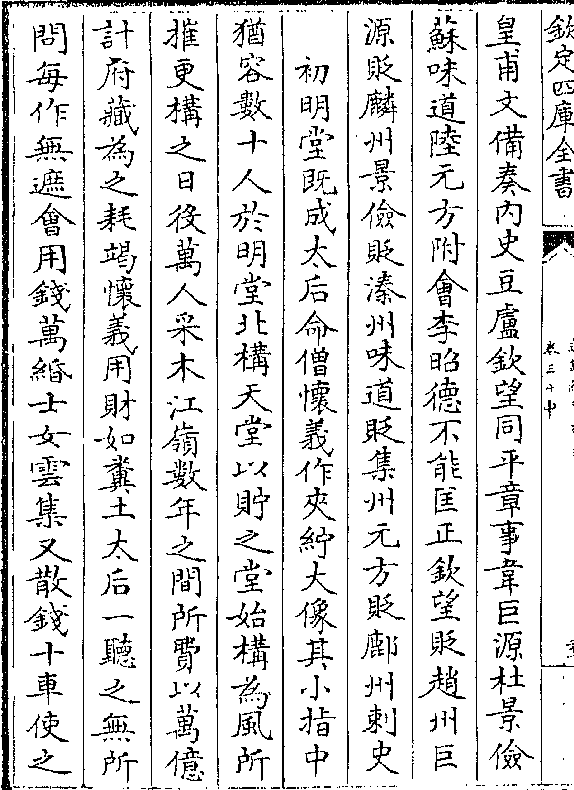 欽定四庫全書
卷三十中
皇甫文備奏内史豆盧欽望同平章事韋巨源杜景儉
蘇味道陸元方附會李昭德不能匡正欽望貶趙州巨
源貶麟州景儉貶溱州味道貶集州元方貶鄜州刺史
初明堂既成太后命僧懷義作夾紵大像其小指中
猶容數十人於明堂北構天堂以貯之堂始構為風所
摧更構之日役萬人采木江嶺數年之間所費以萬億
計府藏為之耗竭懷義用財如糞土太后一聽之無所
問每作無遮會用錢萬緡士女雲集又散錢十車使之